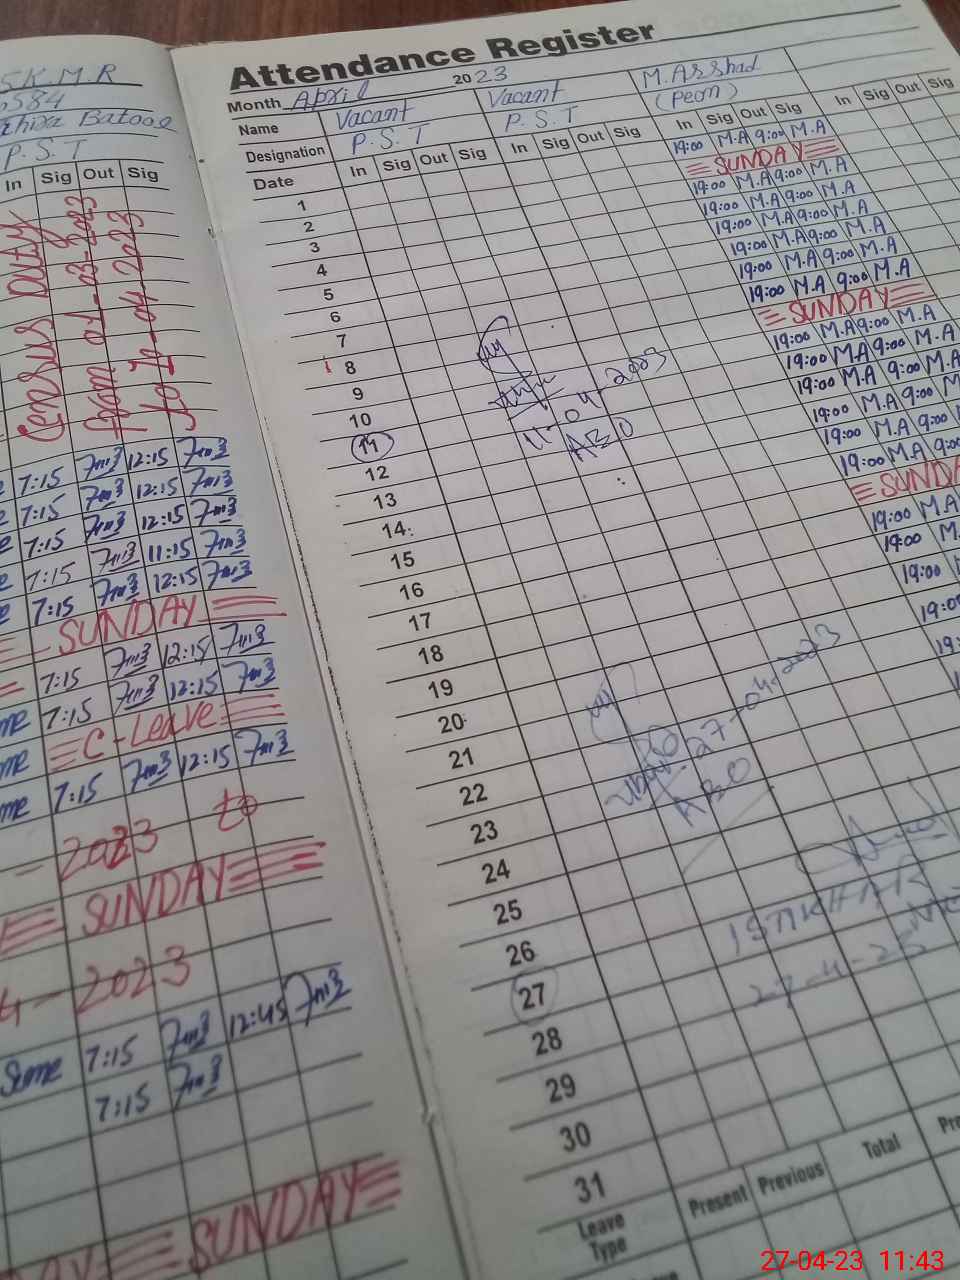 SK.M.R
Batool
P.S.T
In Sig Out Sig
Census Duty
From 01-03-2023
7:15 12:15
7:15 12:15
7:15 12:15
7:15 11:15
7:15 12:15
SUNDAY
7:15 12:15
7:15 12:15
C-Leave
7:15 12:15
- 2023 to
SUNDAY
4-2023
Same 7:15 12:45
7:15
SUNDAY
Attendance Register
Month April 2023
Name Vacant Vacant M.Arshad
Designation P.S.T P.S.T (Peon)
Date In Sig Out Sig In Sig Out Sig In Sig Out Sig In Sig Out Sig
1 19:00 M.A 9:00 M.A
2 SUNDAY
3 19:00 M.A 9:00 M.A
4 19:00 M.A 9:00 M.A
5 19:00 M.A 9:00 M.A
6 19:00 M.A 9:00 M.A
7 19:00 M.A 9:00 M.A
8 19:00 M.A 9:00 M.A
9 SUNDAY
10 19:00 M.A 9:00 M.A
11 19:00 M.A 9:00 M.A
12 19:00 M.A 9:00 M.A
13 19:00 M.A 9:00
14 19:00 M.A 9:00
15 19:00 M.A 9:00
16 SUNDA
17 19:00 M.A
18 19:00 M.
19 19:00
20 19:00
21 19:
22
23
24
25
26
27
28
29
30
31
11-04-2023
AEO
27-04-2023
AEO
27-4-23
Leave Type Present Previous Total Pre
27-04-23 11:43